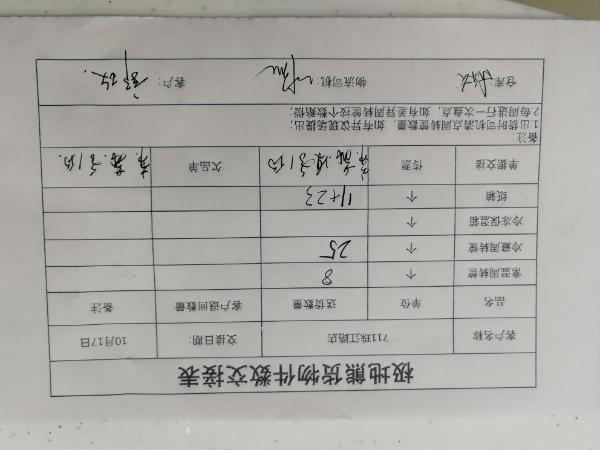 极地熊货物件数交接表
客户名称 711珠江路店 交接日期: 10月17日
品名 单位 送货数量 客户退回数量 备注
常温周转筐 个 8
冷藏周转筐 个 25
冷冻保温箱 个
纸箱 个 11+23
单据交接 传票 欠品单
备注:
1.出货时司机清点周转筐数量, 如有异议现场提出;
2.每周进行一次盘点, 如有差异周转筐按个数赔偿;
仓库: 物流司机: 客户: